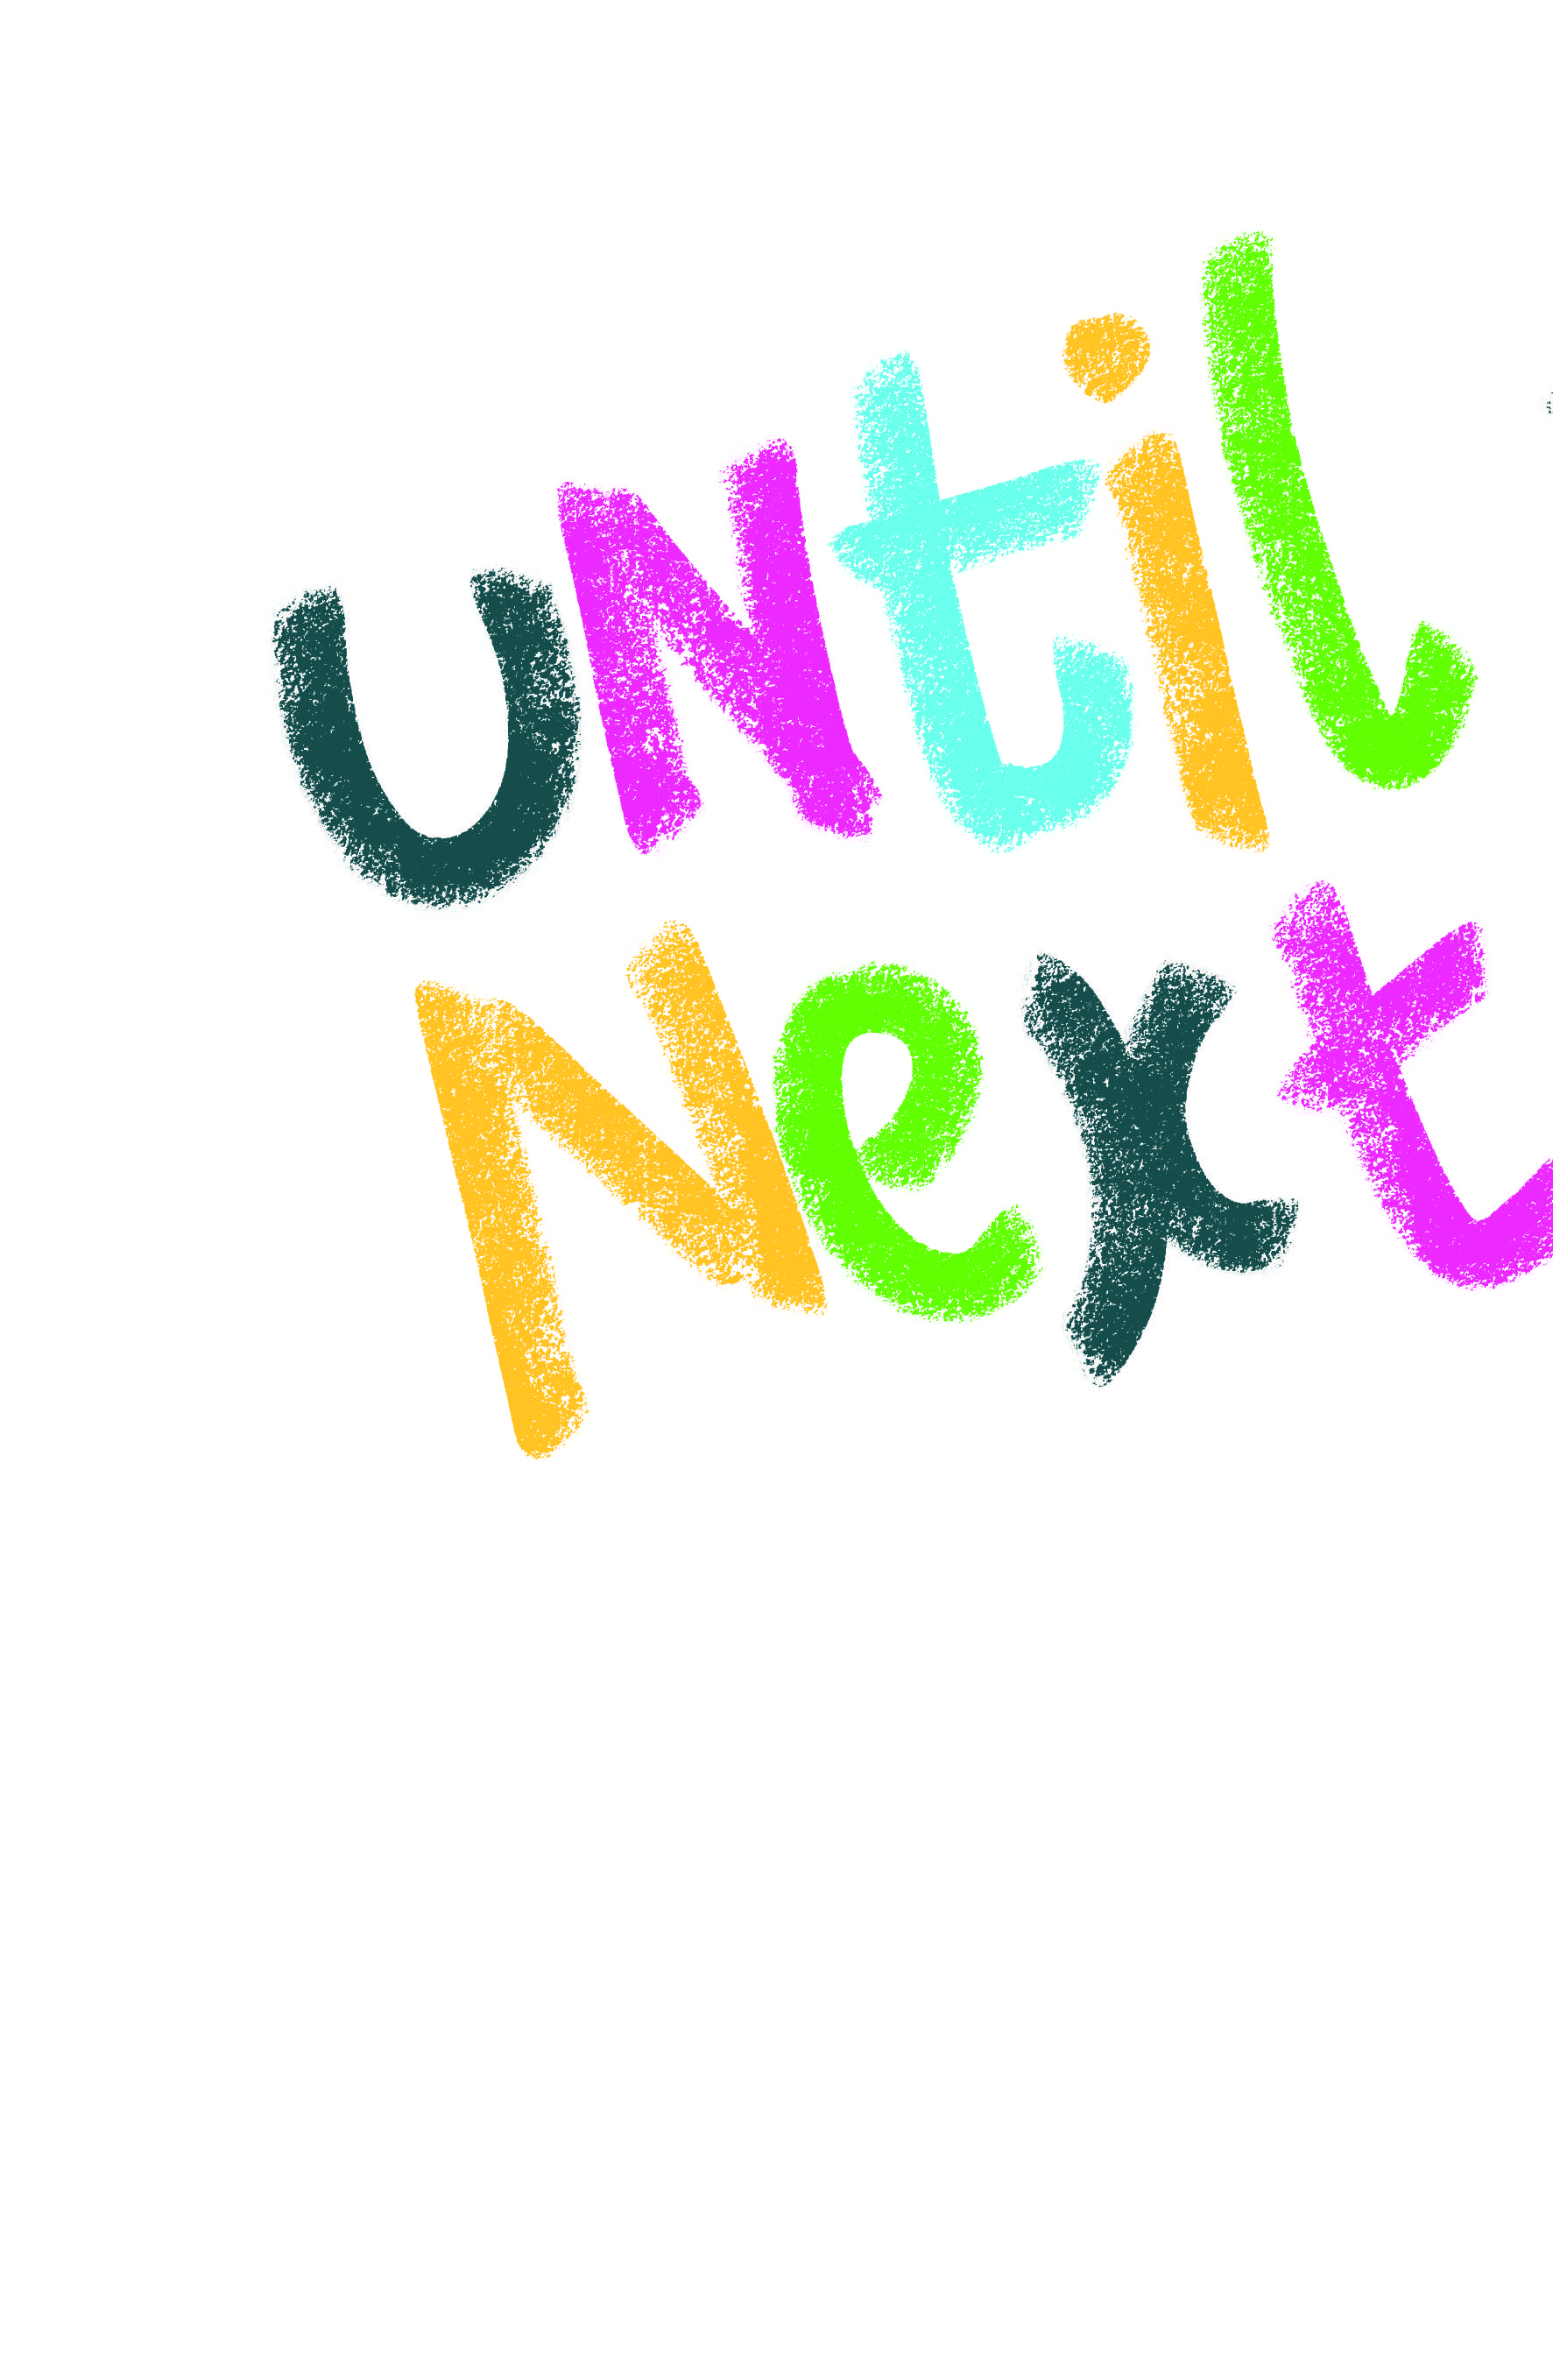 uNtil
Next